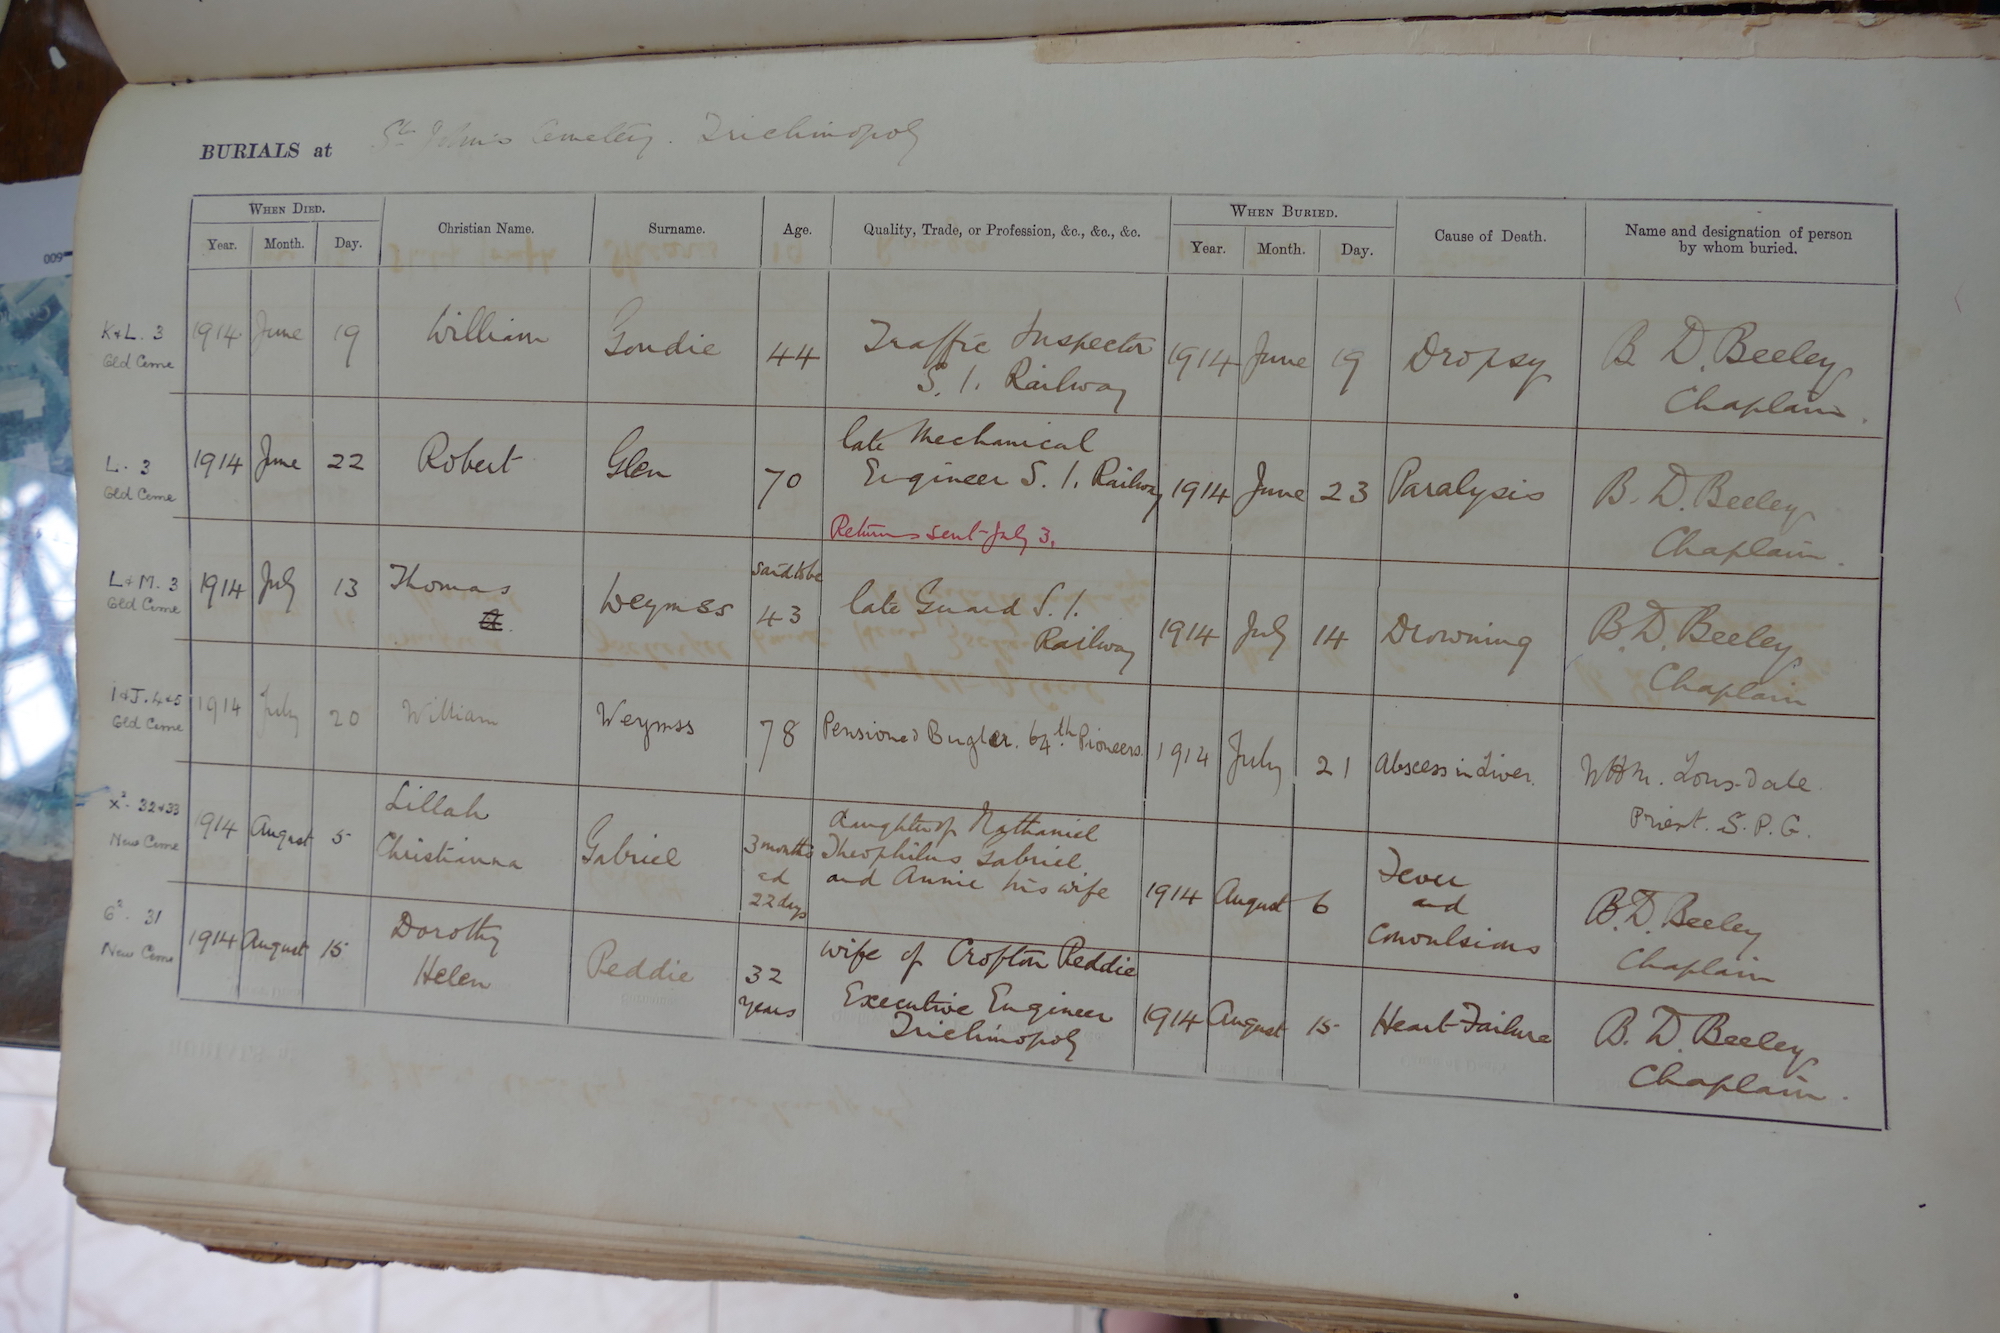 BURIALS at St. John's Cemetery. Trichinopoly
WHEN DIED.
Year. Month. Day.
Christian Name.
Surname.
Age.
Quality, Trade, or Profession, &c., &c., &c.
WHEN BURIED.
Year. Month. Day.
Cause of Death.
Name and designation of person
by whom buried.
K & L. 3
Old Ceme
1914 June 19 William Goudie 44 Traffic Inspector
S. I. Railway
1914 June 19 Dropsy B. D. Beeley
Chaplain.
L. 3
Old Ceme
1914 June 22 Robert Glen 70 late Mechanical
Engineer S. I. Railway
1914 June 23 Paralysis B. D. Beeley
Chaplain.
Returns sent July 3.
L & M. 3
Old Ceme
1914 July 13 Thomas Weymss said to be
43
late Guard S. I.
Railway
1914 July 14 Drowning B. D. Beeley
Chaplain
I & J. 4 & 5
Old Ceme
1914 July 20 William Weymss 78 Pensioned Bugler. 64th. Pioneers. 1914 July 21 Abscess in Liver. WHM. Lonsdale.
Priest. S. P. G.
X2. 32 & 33
New Ceme
1914 August 5 Lillah
Christianna
Gabriel 3 months
ad
22 days
daughter of Nathaniel
Theophilus Gabriel
and Annie his wife
1914 August 6 Fever
and
Convulsions
B. D. Beeley
Chaplain
G2. 31
New Ceme
1914 August 15 Dorothy
Helen
Peddie 32
years
wife of Crofton Peddie
Executive Engineer
Trichinopoly
1914 August 15 Heart Failure B. D. Beeley
Chaplain.
600